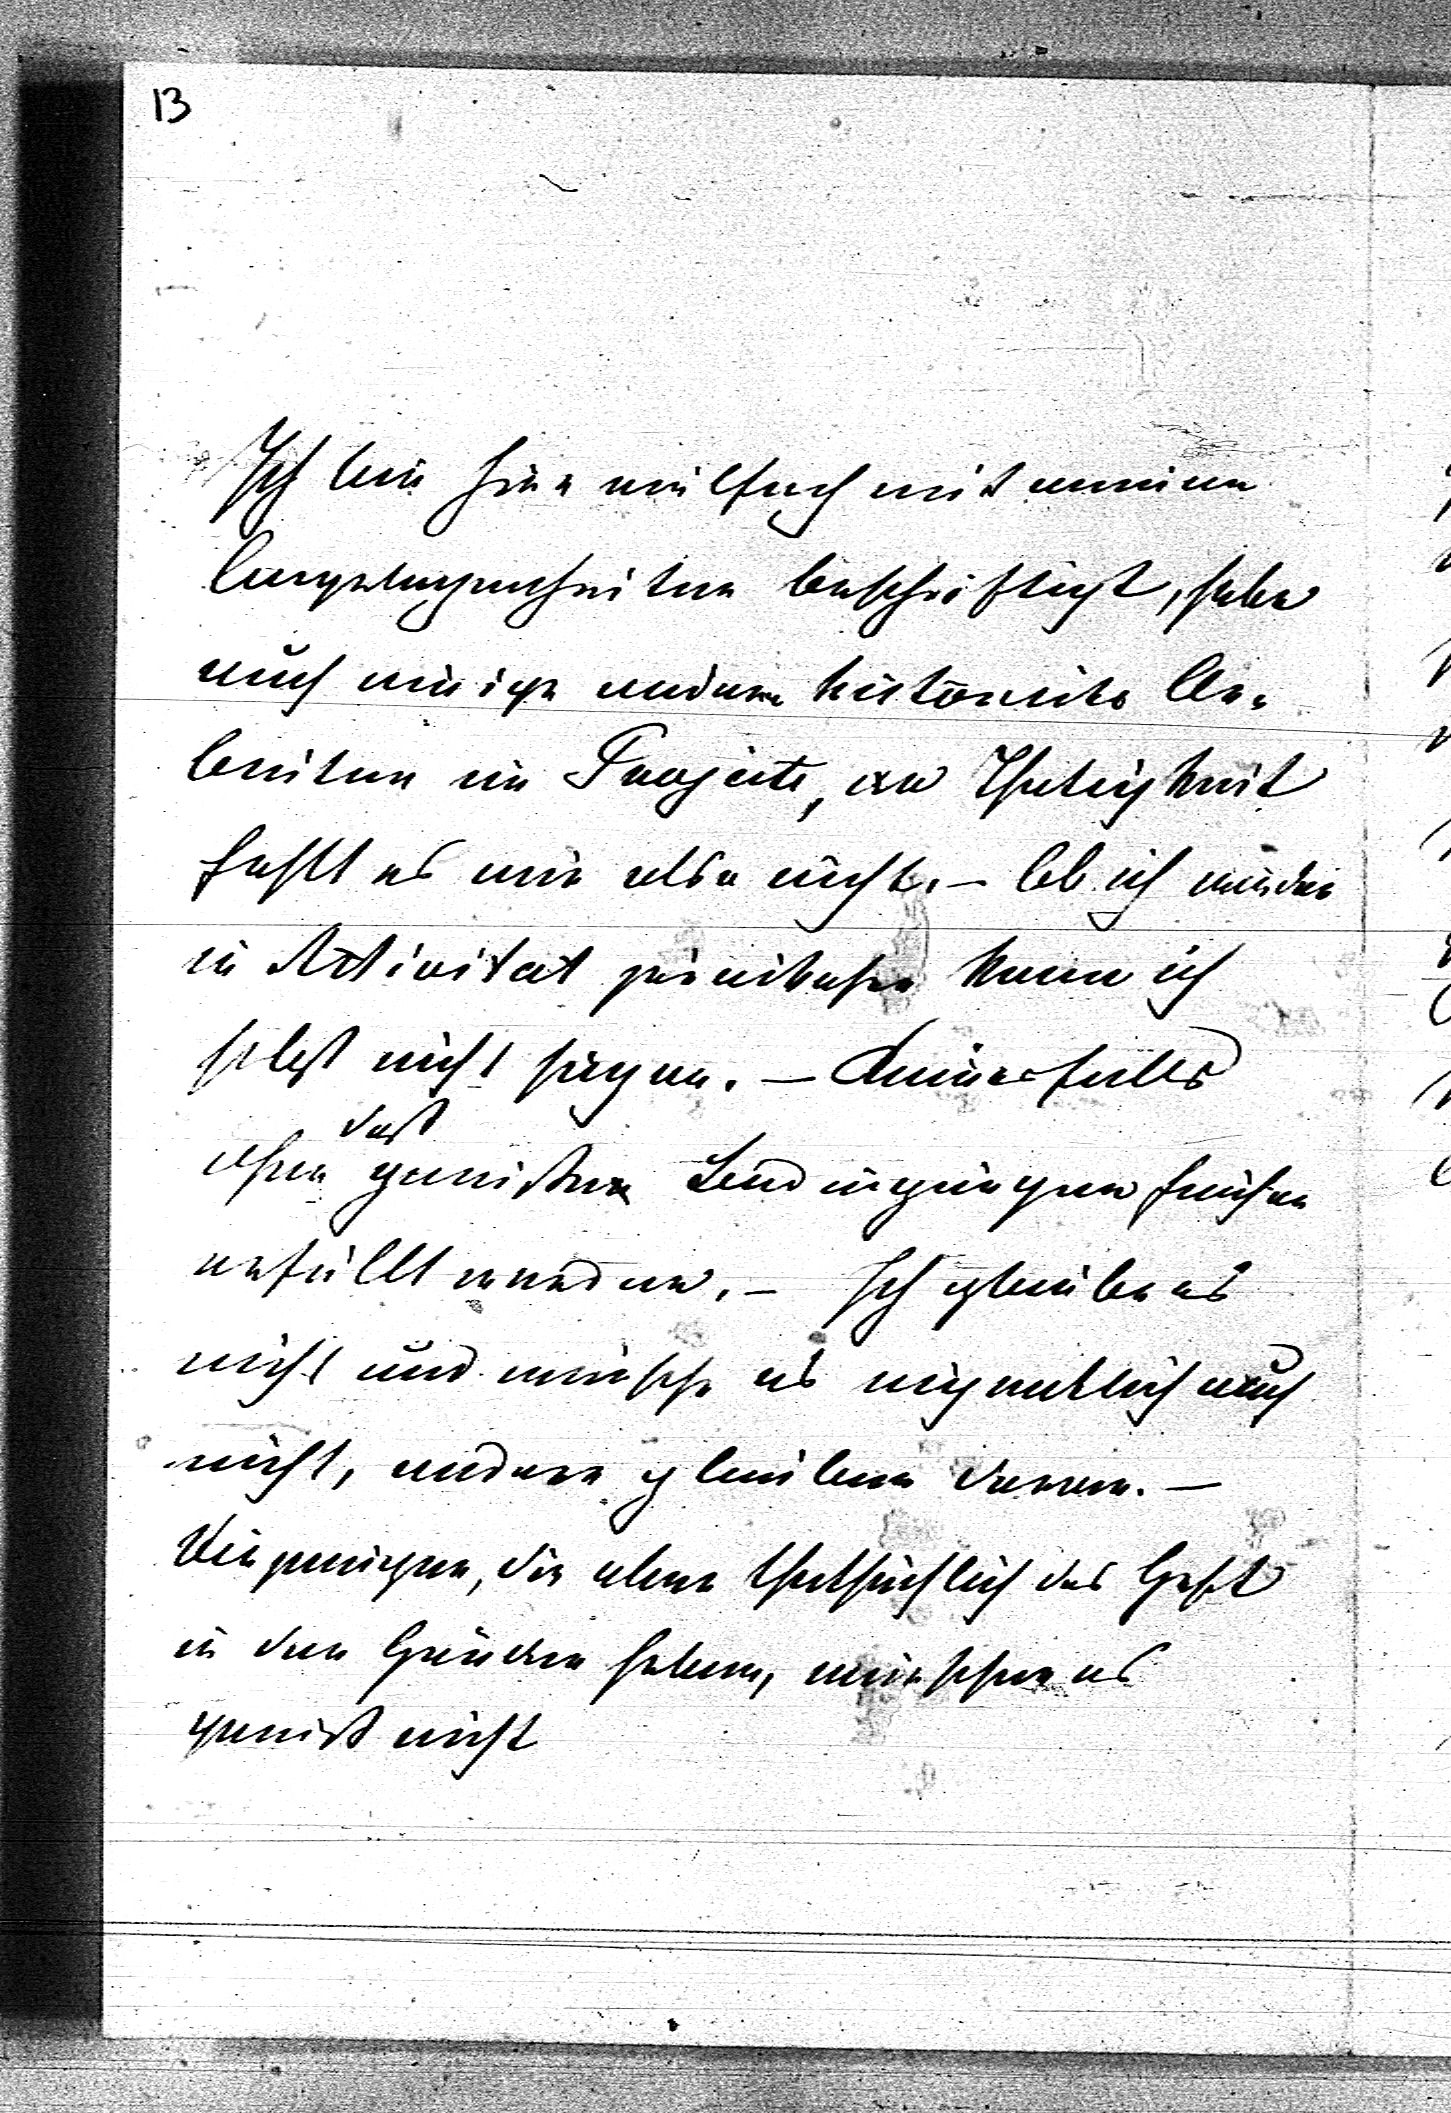 13
Ich bin hier vielfach mit meinen
Angelegenheiten beschäftigt, habe
auch einige andere historische Ar-
beiten im Projecte, an Thätigkeit
fehlt es mir also nicht. – Ob ich wieder
in Activitat zurücktrete kann ich
selbst nicht sagen. – Keinesfalls
daß
ohne gewissen Bedingungen
erfüllt werden. – Ich glaube es
nicht und wünsche es eigentlich auch
nicht, andere glauben daran. –
Diejenigen, die aber thatsächlich das Heft
in den Händen haben, wünschen es
gewiß nicht